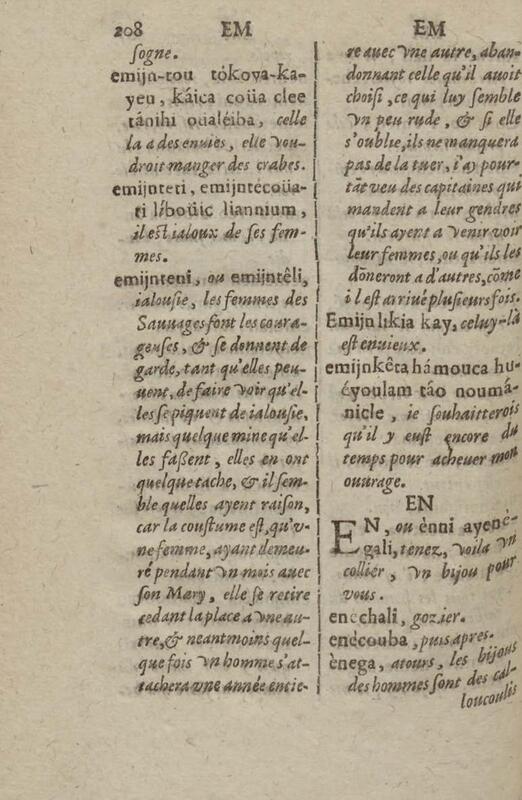 208 EM EM
sogne.
emijn-tou tókoya-ka-
yeu, káica coüa clee
tánihi oüaléiba, celle
la a des enuies, elle vou-
droit manger des crabes.
emijnteti, emijntécoüa-
ti líboüic liannium,
il est ialoux de ses fem-
mes.
emijnteni, ou emijntêli,
ialousie, les femmes des
Sauuages font les coura-
geuses, & se donnent de
garde, tant qu'elles peu-
uent, de faire voir qu'el-
les se piquent de ialousie,
mais quelque mine qu'el-
les faßent, elles en ont
quelque tache, & il sem-
ble quelles ayent raison,
car la coustume est, qu'v-
ne femme, ayant demeu-
ré pendant vn mois auec
son Mary, elle se retire
cedant la place a vne au-
tre, & neantmoins quel-
que fois vn homme s'at-
tachera vne année entie-
re auec vne autre, aban-
donnant celle qu'il auoit
choisi, ce qui luy semble
vn peu rude, & si elle
s'oublie, ils ne manquera
pas de la tuer, i'ay pour-
tāt veu des capitaines qui
mandent a leur gendres
qu'ils ayent a venir voir
leur femmes, ou qu'ils les
dōneront a d'autres, cōme
il est arriué plusieurs fois.
Emijnlikia kay, celuy-là
est enuieux.
emijnkêta hámouca hu-
éyoulam táo noumá-
nicle, ie souhaitterois
qu'il y eust encore du
temps pour acheuer mon
ouurage.
EN
EN, ou ènni ayené-
gali, tenez, voila vn
collier, vn bijou pour
vous.
enechali, gozier.
enécouba, puis apres.
ènega, atours, les bijous
des hommes sont des cal-
loucoulis